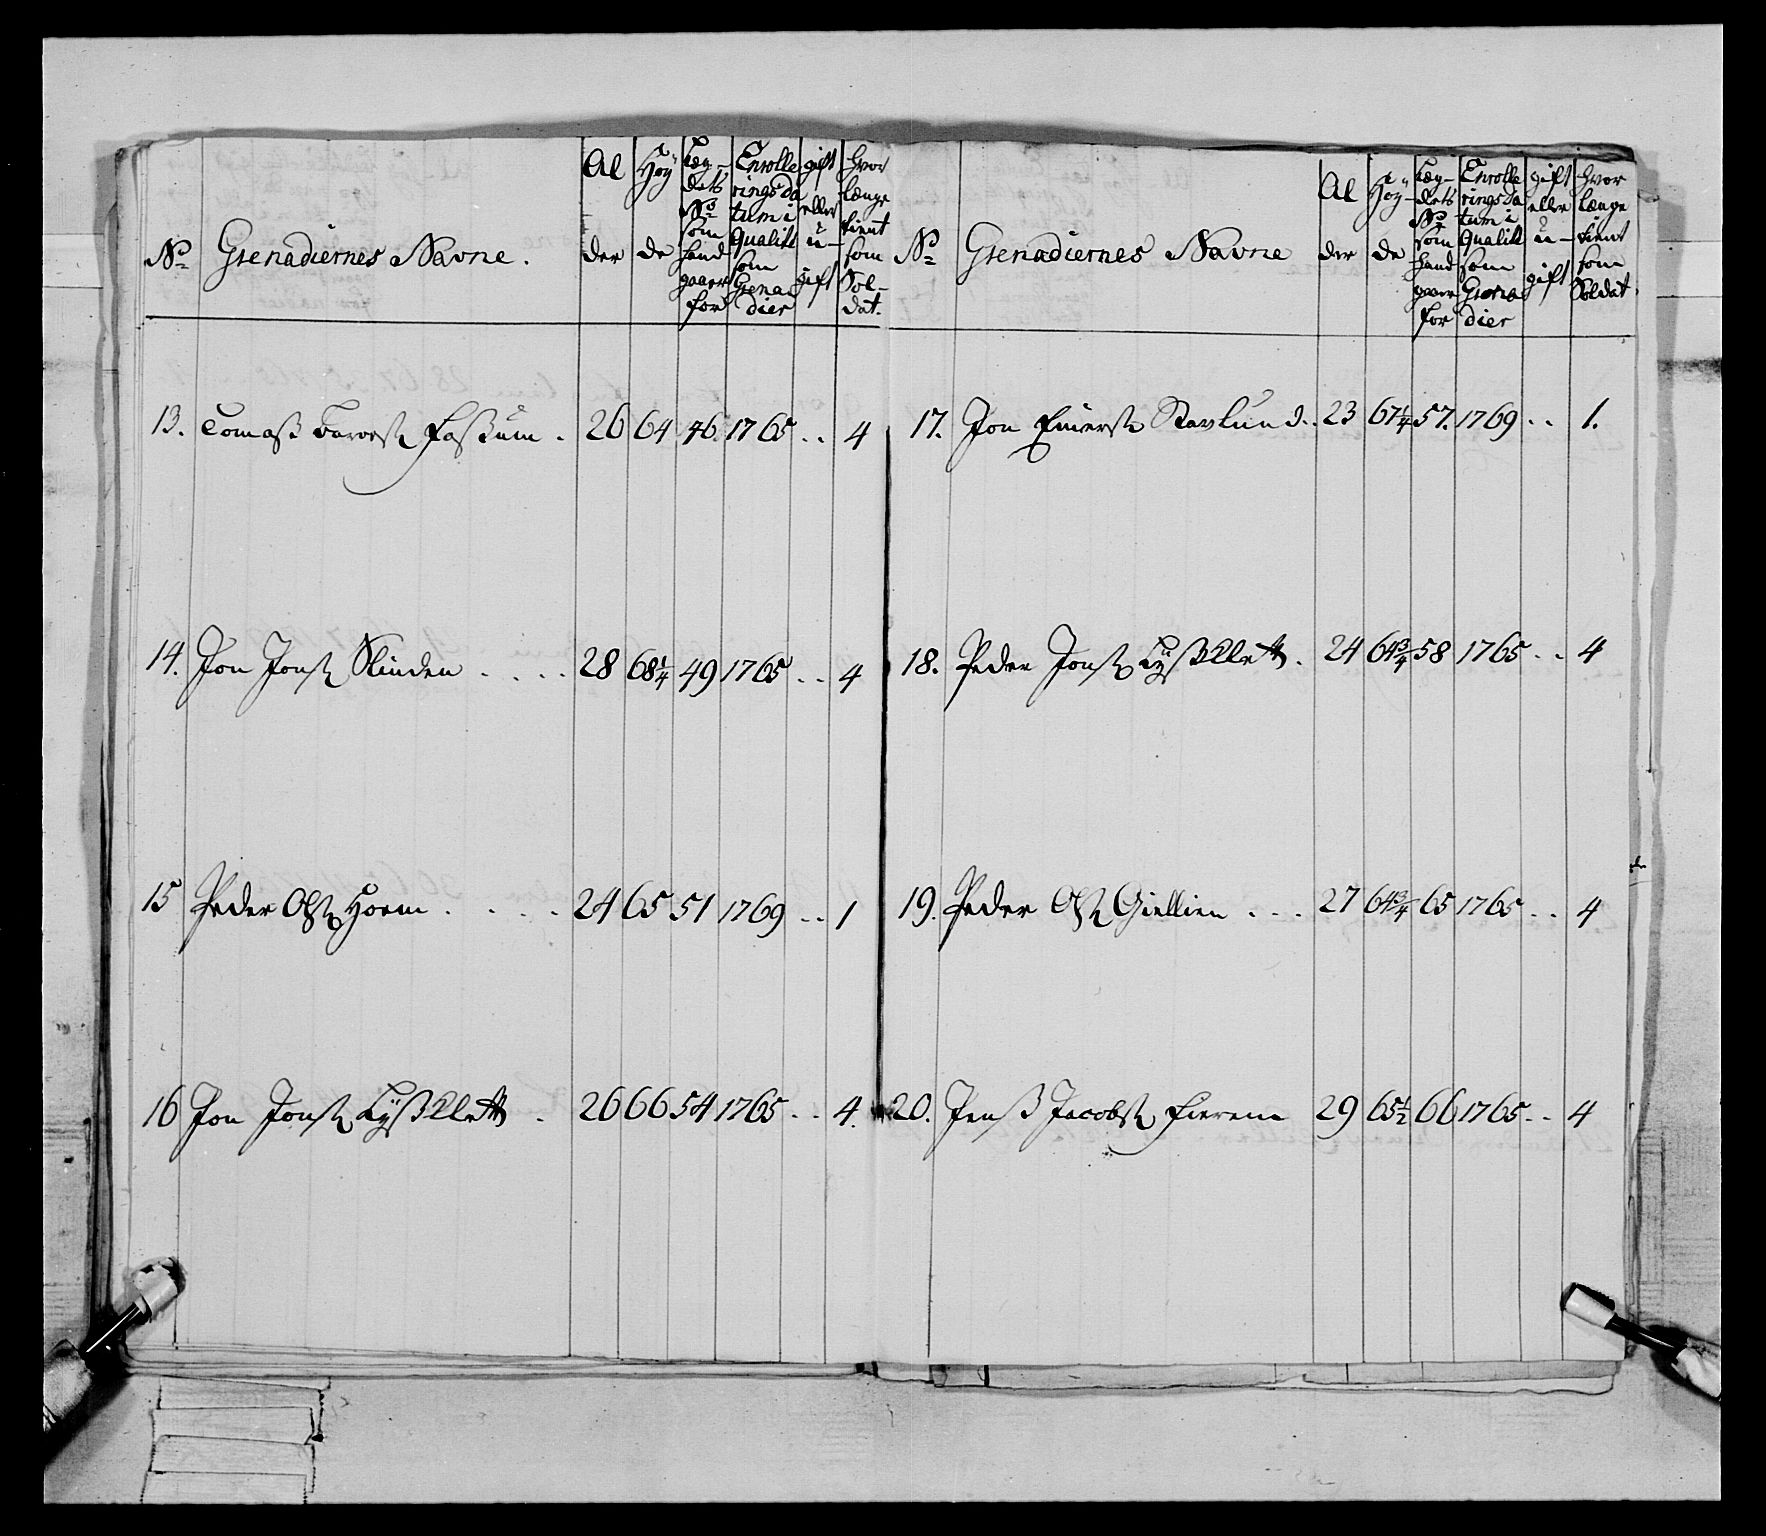 No Grenadiernes Navne. Alder Høÿde Lægdets No som hand gaaer for Enrollerings Datum i Qualite som Grenadier gift eller u-gift hvor længe tient som Soldat.
13. Tomaß Faßium . 26 64 46. 1765 . . 4
14. Jon Jonsz Slinden . . . . 28 68 1/4 49 1765 . . 4
15 Peder Olsz Hoem . . . . 24 65 51 1769 . . 1
16 Jon Jonsz Lÿßklett . 26 66 54 1765 . . 4.
No Grenadiernes Navne Alder Høÿde Lægdets No som hand gaaer for Enrolleringsdatum i Qualite som Grenadier gift eller u-gift hvor længe tient som Soldat
17. Jon Einersz Stavlund. . 23 67 1/4 57. 1769 . . 1.
18. Peder Jonsz Lÿßklett . 24 64 3/4 58 1765 . . 4
19. Peder Olsz Giellien . . . 27 64 3/4 65 1765 . . 4
20. Jenß Jacobsz Fierem 29 65 1/2 66 1765 . . 4